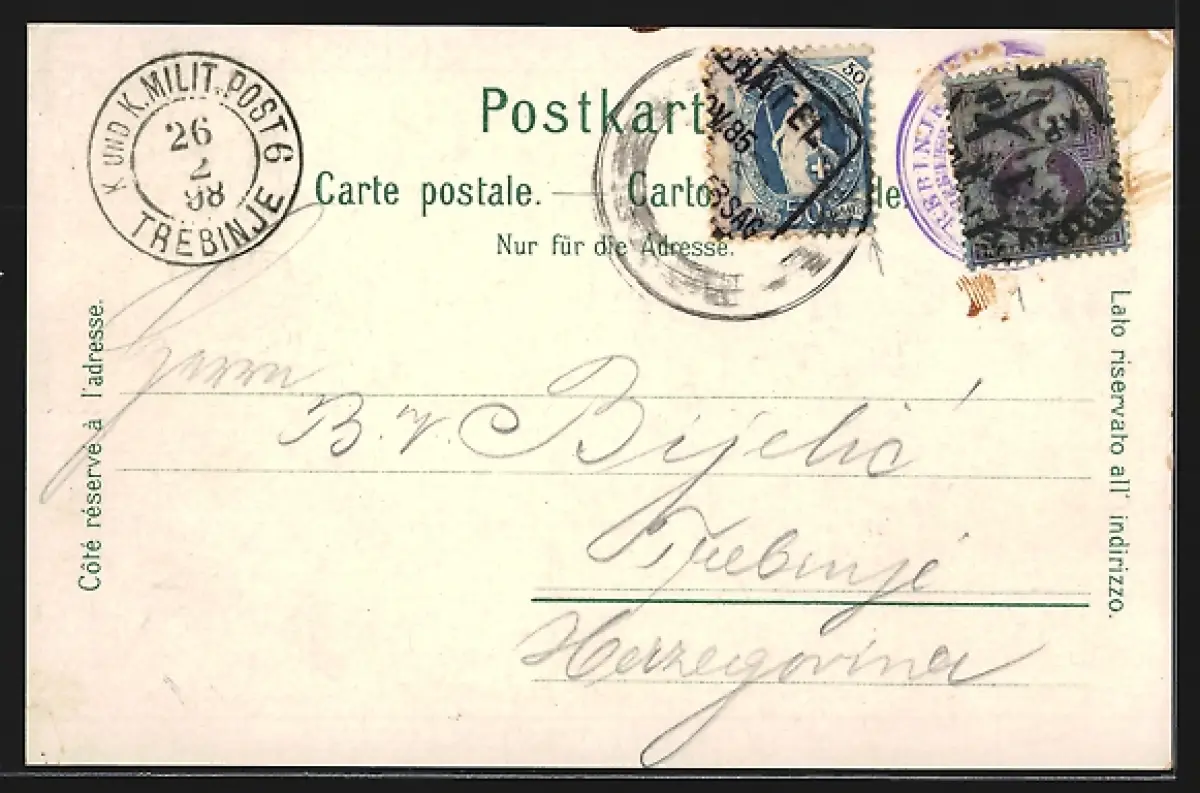 K UND K. MILIT. POST 6
26
2
98
TREBINJE
Postkart
Carte postale. — Carto
Nur für die Adresse.
50
Côté réservé à l'adresse.
Lato riservato all' indirizzo.
Herrn
B. v. Bijelić
Trebinje
Herzegovina